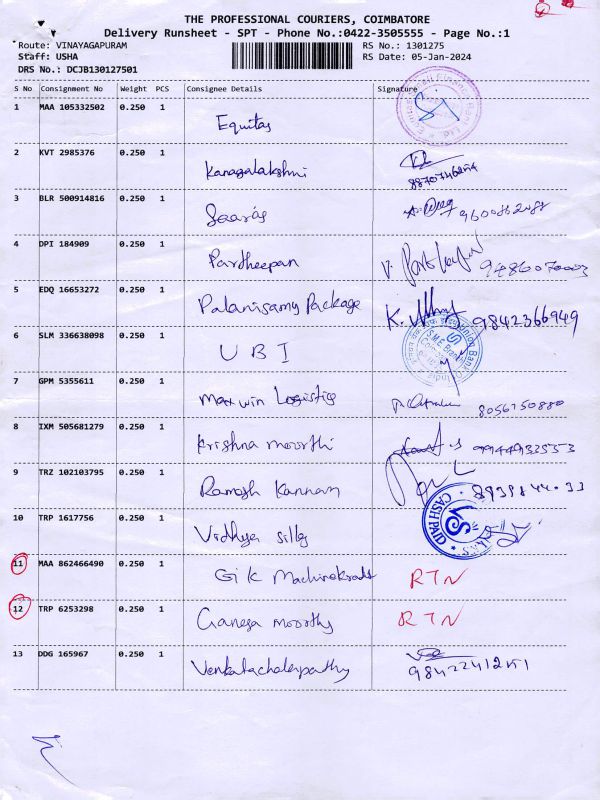 THE PROFESSIONAL COURIERS, COIMBATORE
Delivery Runsheet - SPT - Phone No.:0422-3505555 - Page No.:1
Route: VINAYAGAPURAM RS No.: 1301275
Staff: USHA RS Date: 05-Jan-2024
DRS No.: DCJB130127501
S No Consignment No Weight PCS Consignee Details Signature
1 MAA 105332502 0.250 1 Equitas
2 KVT 2985376 0.250 1 Kanagalakshmi
3 BLR 500914816 0.250 1 9600862488
4 DPI 184909 0.250 1 Partheepan
5 EDQ 16653272 0.250 1 Palanisamy Package 9842366949
6 SLM 336638098 0.250 1 UBI
7 GPM 5355611 0.250 1 Maxwin Logistics 8056750880
8 IXM 505681279 0.250 1 Krishna moorthi 9944932553
9 TRZ 102103795 0.250 1 Ramesh Kannan
10 TRP 1617756 0.250 1 Vidhya CASH PAID
11 MAA 862466490 0.250 1 RTN
12 TRP 6253298 0.250 1 Ganesa moorthy RTN
13 DDG 165967 0.250 1 Venkatachalapathy